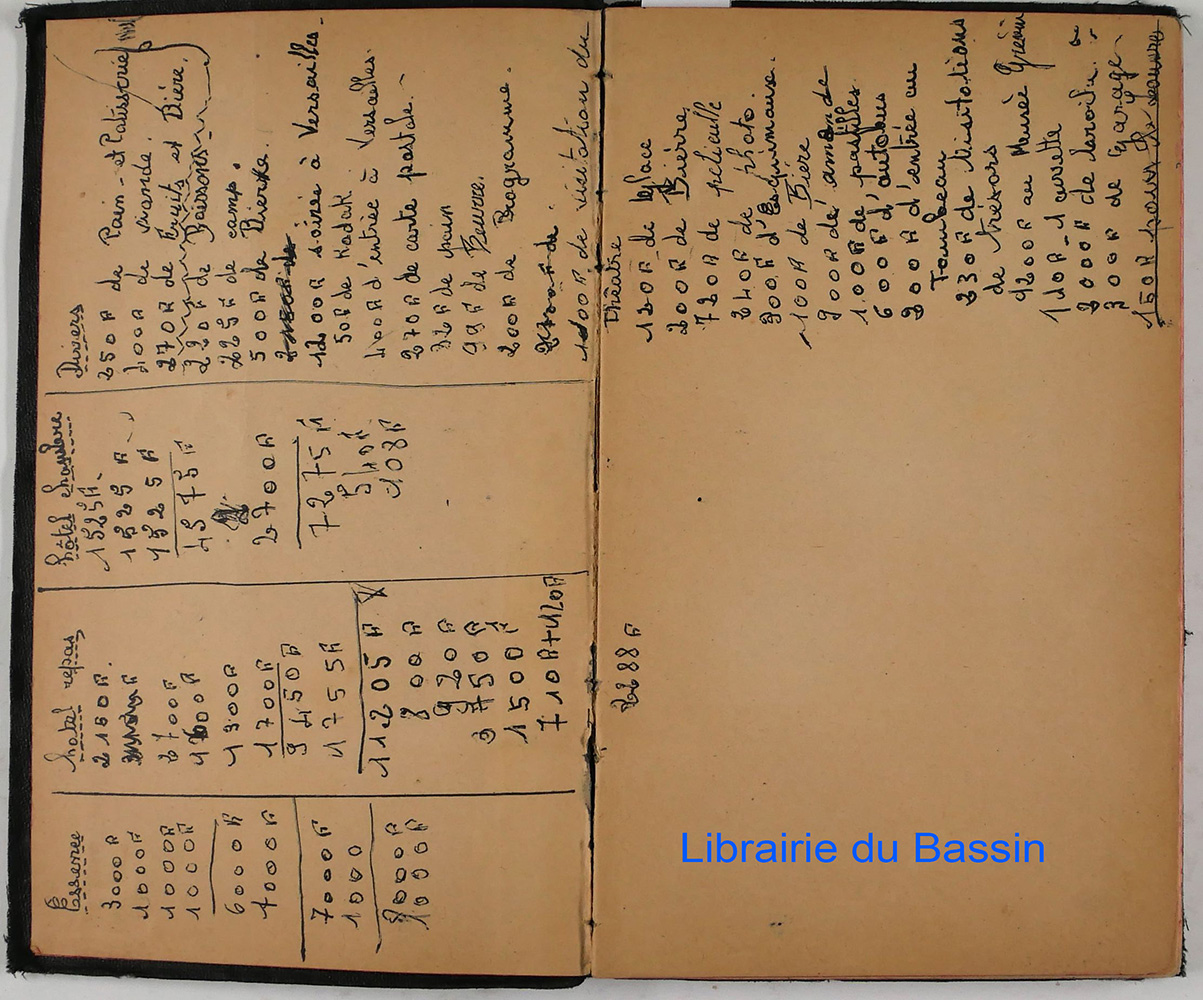 Essence
3000F
1000F
1000F
1000F
6000F
1000F
7000F
1000
8000F
1000F
hôtel repas
2150F.
2700F
1300F
1700F
9450F
1755F
11205F
800F
920F
750F
1500F
710F+420F
hôtel chambre
1525F.
1525F
1525F
4575F
2700F
7275F
540F.
108F
Divers
250F de Pain et Patisserie
400F de viande.
270F de Fruits et Bière.
220F de Boissons
225F de camp.
500F de Bierre.
1200F soirée à Versailles.
50F de Kodak.
400F d'entrée à Versailles
270F de carte postale.
32F de pain
99F de Beurre.
200F de Programme.
100F de visitation du
Théatre
120F de glace
200F de Bierre
720F de pellicule
240F de photo.
300F d'Esquimause.
100F de Bière
900F d'amende
100F de pastilles
600F d'autobus
200F d'entrée au
Tombeau
230F de visitations
de trésors
920F au Musée Grévin
110F 1 cuvette
300F de Garage
150F pour le Louvre
2288F
Librairie du Bassin